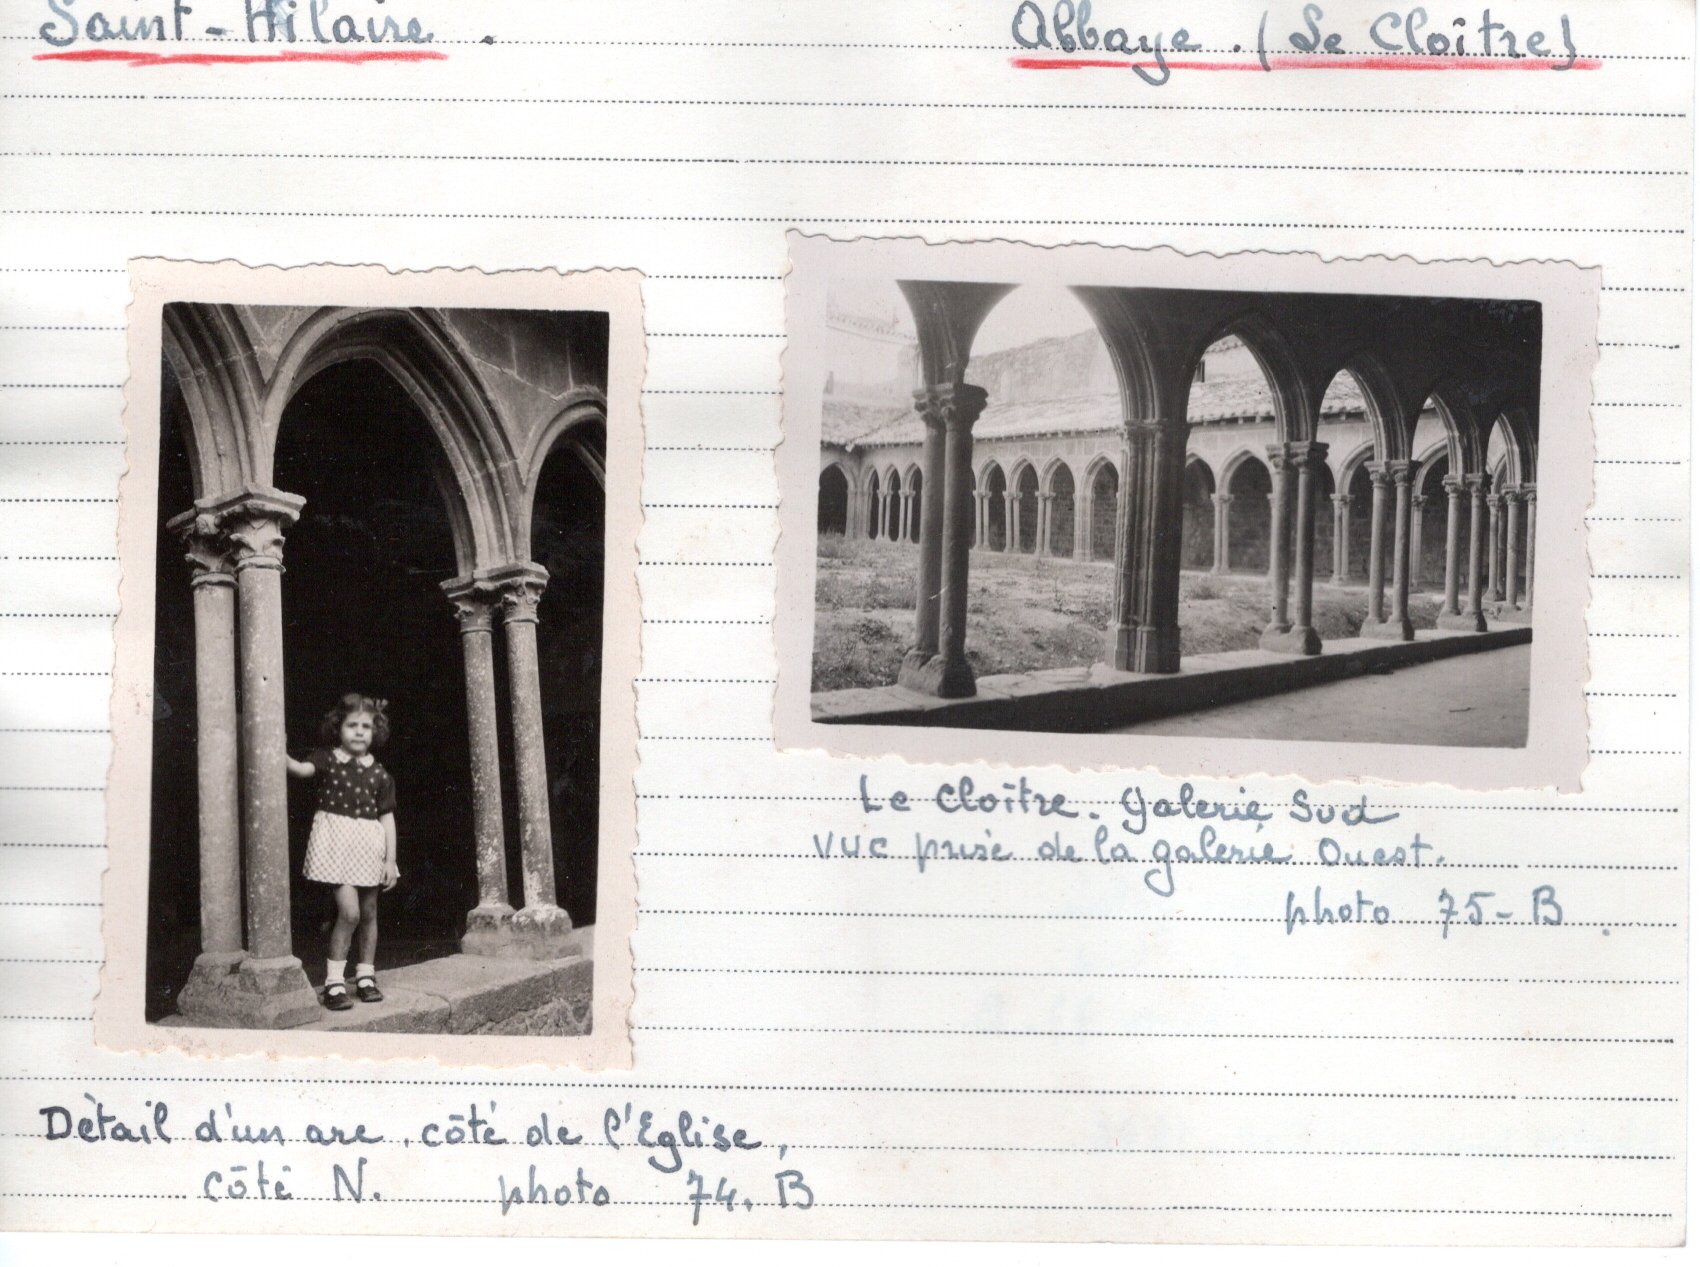 Saint-Hilaire.
Abbaye. (Le Cloître)
Le Cloître. Galerie Sud
vue prise de la galerie Ouest.
photo 75-B
Détail d'un arc, côté de l'Eglise,
côté N. photo 74. B